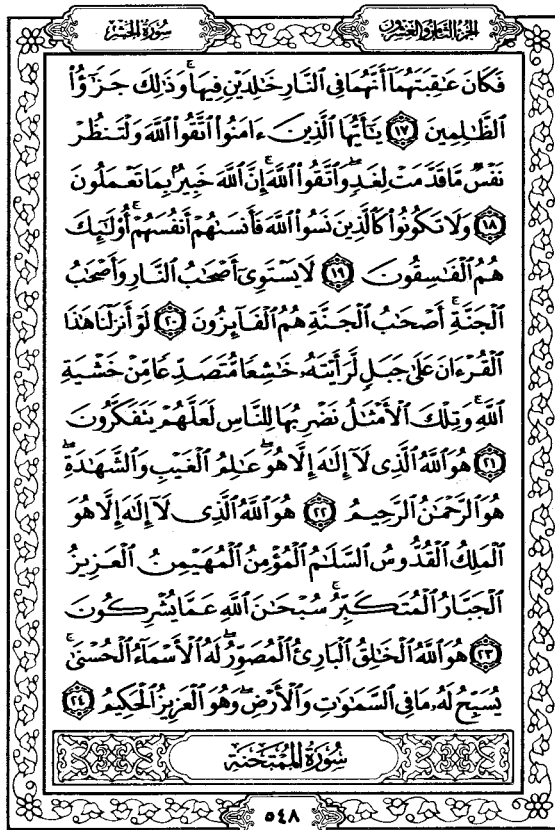 سُورَةُ الحَشْرِ
الجُزءُ الثَّامِنُ وَالعِشْرُونَ
فَكَانَ عَٰقِبَتَهُمَآ أَنَّهُمَا فِى ٱلنَّارِ خَٰلِدَيْنِ فِيهَا ۚ وَذَٰلِكَ جَزَٰٓؤُا۟
ٱلظَّٰلِمِينَ ﴿١٧﴾ يَٰٓأَيُّهَا ٱلَّذِينَ ءَامَنُوا۟ ٱتَّقُوا۟ ٱللَّهَ وَلْتَنظُرْ
نَفْسٌ مَّا قَدَّمَتْ لِغَدٍ ۖ وَٱتَّقُوا۟ ٱللَّهَ ۚ إِنَّ ٱللَّهَ خَبِيرٌۢ بِمَا تَعْمَلُونَ
﴿١٨﴾ وَلَا تَكُونُوا۟ كَٱلَّذِينَ نَسُوا۟ ٱللَّهَ فَأَنسَىٰهُمْ أَنفُسَهُمْ ۚ أُو۟لَٰٓئِكَ
هُمُ ٱلْفَٰسِقُونَ ﴿١٩﴾ لَا يَسْتَوِىٓ أَصْحَٰبُ ٱلنَّارِ وَأَصْحَٰبُ
ٱلْجَنَّةِ ۚ أَصْحَٰبُ ٱلْجَنَّةِ هُمُ ٱلْفَآئِزُونَ ﴿٢٠﴾ لَوْ أَنزَلْنَا هَٰذَا
ٱلْقُرْءَانَ عَلَىٰ جَبَلٍ لَّرَأَيْتَهُۥ خَٰشِعًا مُّتَصَدِّعًا مِّنْ خَشْيَةِ
ٱللَّهِ ۚ وَتِلْكَ ٱلْأَمْثَٰلُ نَضْرِبُهَا لِلنَّاسِ لَعَلَّهُمْ يَتَفَكَّرُونَ
﴿٢١﴾ هُوَ ٱللَّهُ ٱلَّذِى لَآ إِلَٰهَ إِلَّا هُوَ ۖ عَٰلِمُ ٱلْغَيْبِ وَٱلشَّهَٰدَةِ ۖ
هُوَ ٱلرَّحْمَٰنُ ٱلرَّحِيمُ ﴿٢٢﴾ هُوَ ٱللَّهُ ٱلَّذِى لَآ إِلَٰهَ إِلَّا هُوَ
ٱلْمَلِكُ ٱلْقُدُّوسُ ٱلسَّلَٰمُ ٱلْمُؤْمِنُ ٱلْمُهَيْمِنُ ٱلْعَزِيزُ
ٱلْجَبَّارُ ٱلْمُتَكَبِّرُ ۚ سُبْحَٰنَ ٱللَّهِ عَمَّا يُشْرِكُونَ
﴿٢٣﴾ هُوَ ٱللَّهُ ٱلْخَٰلِقُ ٱلْبَارِئُ ٱلْمُصَوِّرُ ۖ لَهُ ٱلْأَسْمَآءُ ٱلْحُسْنَىٰ ۚ
يُسَبِّحُ لَهُۥ مَا فِى ٱلسَّمَٰوَٰتِ وَٱلْأَرْضِ ۖ وَهُوَ ٱلْعَزِيزُ ٱلْحَكِيمُ ﴿٢٤﴾
سُورَةُ المُمْتَحنَة
٥٤٨